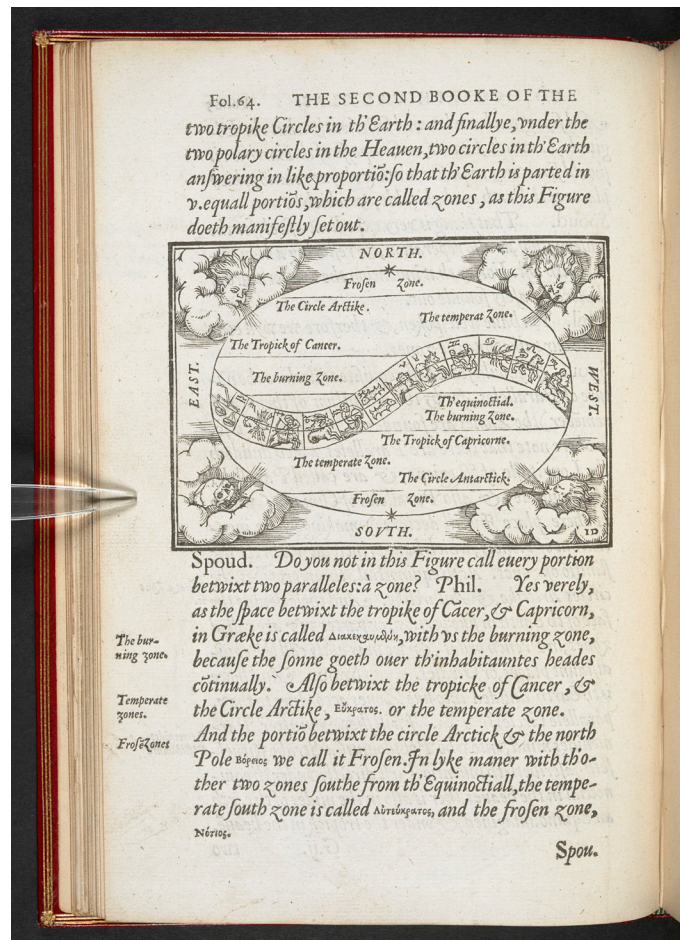 Fol.64. THE SECOND BOOKE OF THE
two tropike Circles in th'Earth : and finallye, vnder the
two polary circles in the Heauen, two circles in th'Earth
anſwering in like proportiō: ſo that th'Earth is parted in
v. equall portiōs, which are called zones, as this Figure
doeth manifeſtly ſet out.
NORTH.
Froſen Zone.
The Circle Arctike.
The temperat Zone.
The Tropick of Cancer.
EAST.
WEST.
The burning Zone.
Th'equinoctial.
The burning Zone.
The Tropick of Capricorne.
The temperate Zone.
The Circle Antarctick.
Froſen Zone.
SOVTH.
ID
Spoud. Do you not in this Figure call euery portion
betwixt two paralleles: à zone? Phil. Yes verely,
as the ſpace betwixt the tropike of Cācer, & Capricorn,
in Græke is called Διακεκαυμένη, with vs the burning zone,
The bur-
ning zone.
becauſe the ſonne goeth ouer th'inhabitauntes heades
cōtinually. Alſo betwixt the tropicke of Cancer, &
Temperate
zones.
the Circle Arctike, Εὔκρατος. or the temperate zone.
And the portiō betwixt the circle Arctick & the north
Froſēzones
Pole Βόρειος we call it Froſen. In lyke maner with th'o-
ther two zones ſouthe from th'Equinoctiall, the tempe-
rate ſouth zone is called Ἀντεύκρατος, and the froſen zone,
Νότιος.
Spou.